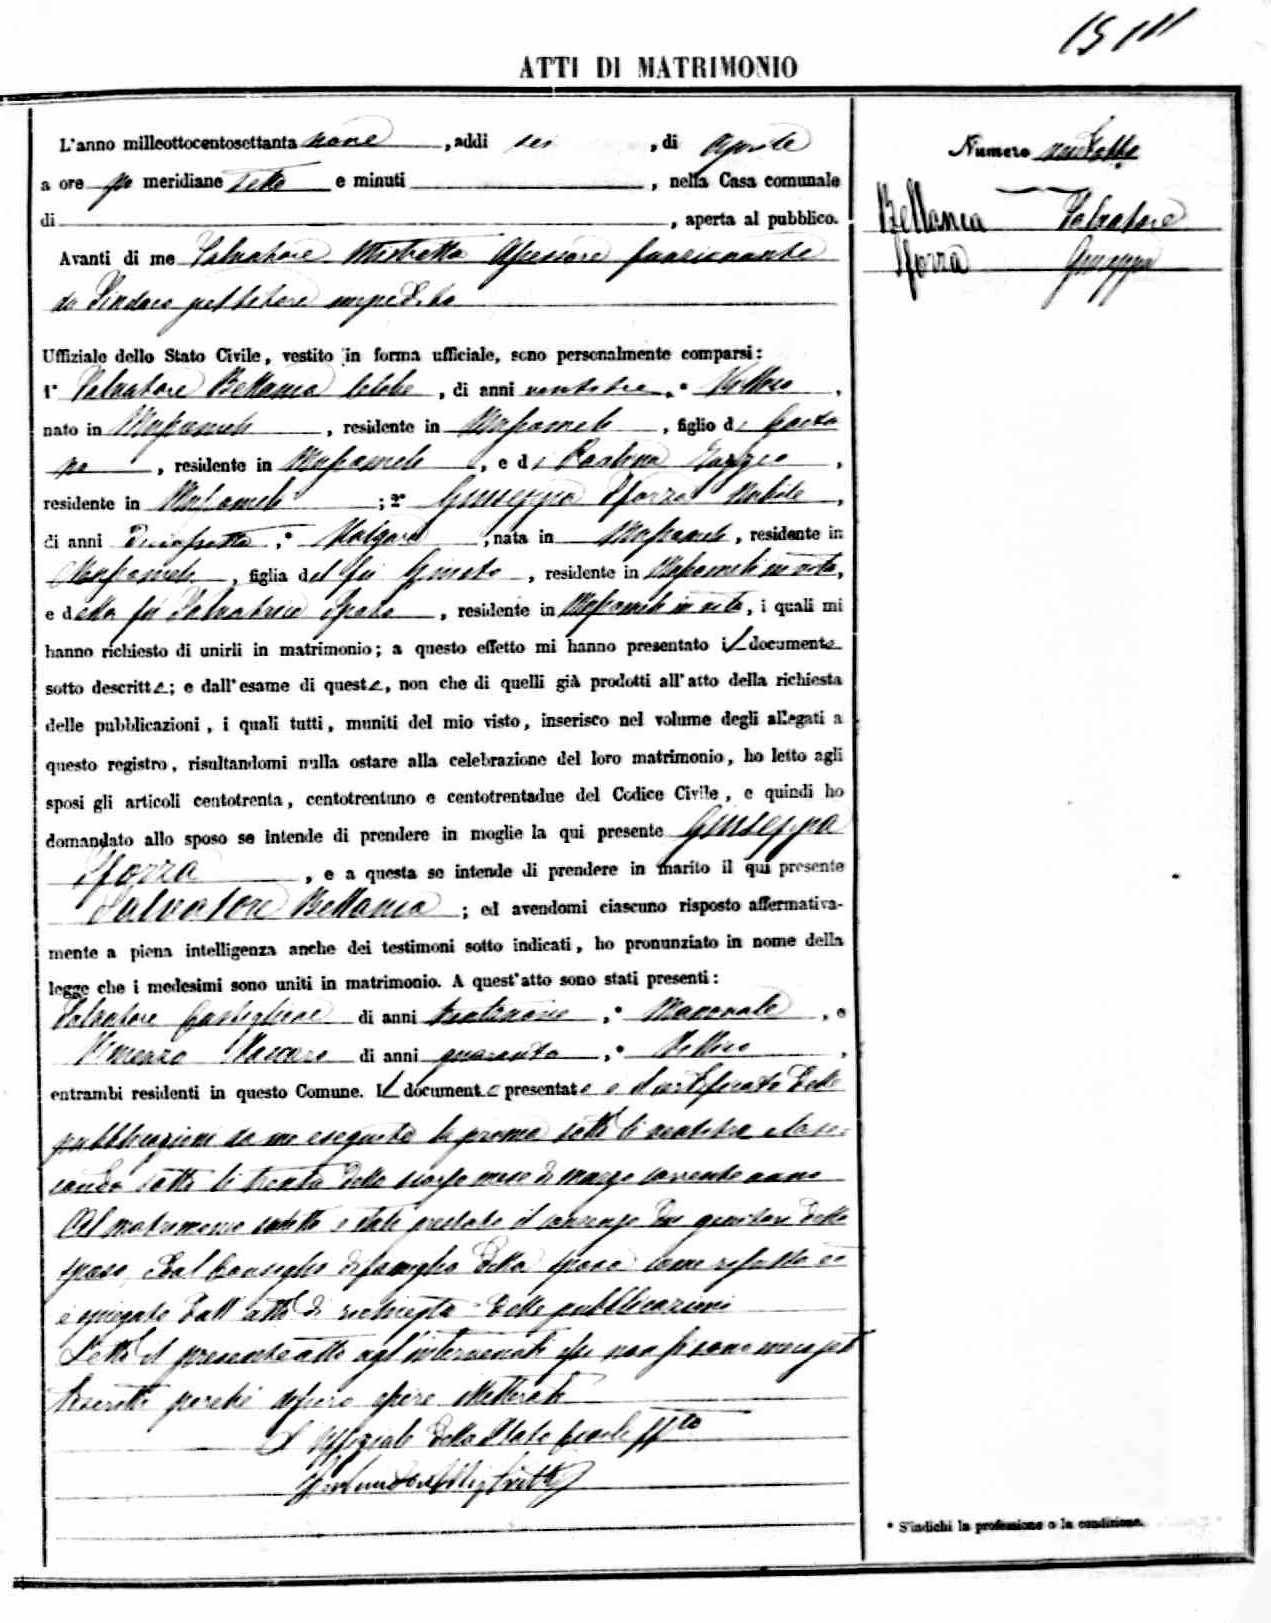 ATTI DI MATRIMONIO
L'anno milleottocentosettanta nove, addi sei, di Aprile
a ore po meridiane sette e minuti , nella Casa comunale
di , aperta al pubblico.
Avanti di me Salvatore Mistretta Assessore funzionante
da Sindaco pel titolare impedito
Uffiziale dello Stato Civile, vestito in forma ufficiale, sono personalmente comparsi:
1° Salvatore Bellanca celebe, di anni ventitre, *
nato in , residente in , figlio di Gaeta
no, residente in , e di Carolina
residente in ; 2° Giuseppa Sforza Nubile,
di anni diciassette, * , nata in , residente in
, figlia del fu , residente in in vita,
e della fu Salvatrice , residente in in vita, i quali mi
hanno richiesto di unirli in matrimonio; a questo effetto mi hanno presentato il documento
sotto descritto; e dall'esame di questo, non che di quelli già prodotti all'atto della richiesta
delle pubblicazioni, i quali tutti, muniti del mio visto, inserisco nel volume degli allegati a
questo registro, risultandomi nulla ostare alla celebrazione del loro matrimonio, ho letto agli
sposi gli articoli centotrenta, centotrentuno e centotrentadue del Codice Civile, e quindi ho
domandato allo sposo se intende di prendere in moglie la qui presente Giuseppa
Sforza, e a questa se intende di prendere in marito il qui presente
Salvatore Bellanca; ed avendomi ciascuno risposto affermativa-
mente a piena intelligenza anche dei testimoni sotto indicati, ho pronunziato in nome della
legge che i medesimi sono uniti in matrimonio. A quest'atto sono stati presenti:
Salvatore Castiglione di anni trentanove, * , e
Vincenzo Vaccaro di anni quaranta, * ,
entrambi residenti in questo Comune. Il documento presentato è il certificato delle
pubblicazioni da me eseguite la prima sotto li ventitre e la se-
conda sotto li trenta dello scorso mese di marzo corrente anno
Al matrimonio sudetto è stato prestato il consenso dai genitori dello
sposo, e dal Consiglio di famiglia della sposa come
è spiegato dall'atto di richiesta delle pubblicazioni
Letto il presente atto agl'intervenuti essi non si sono meco sot
toscritti perchè dissero essere illetterati
L'Uffiziale dello Stato Civile
Numero
Bellanca Salvatore
Sforza Giuseppa
* S'indichi la professione o la condizione.